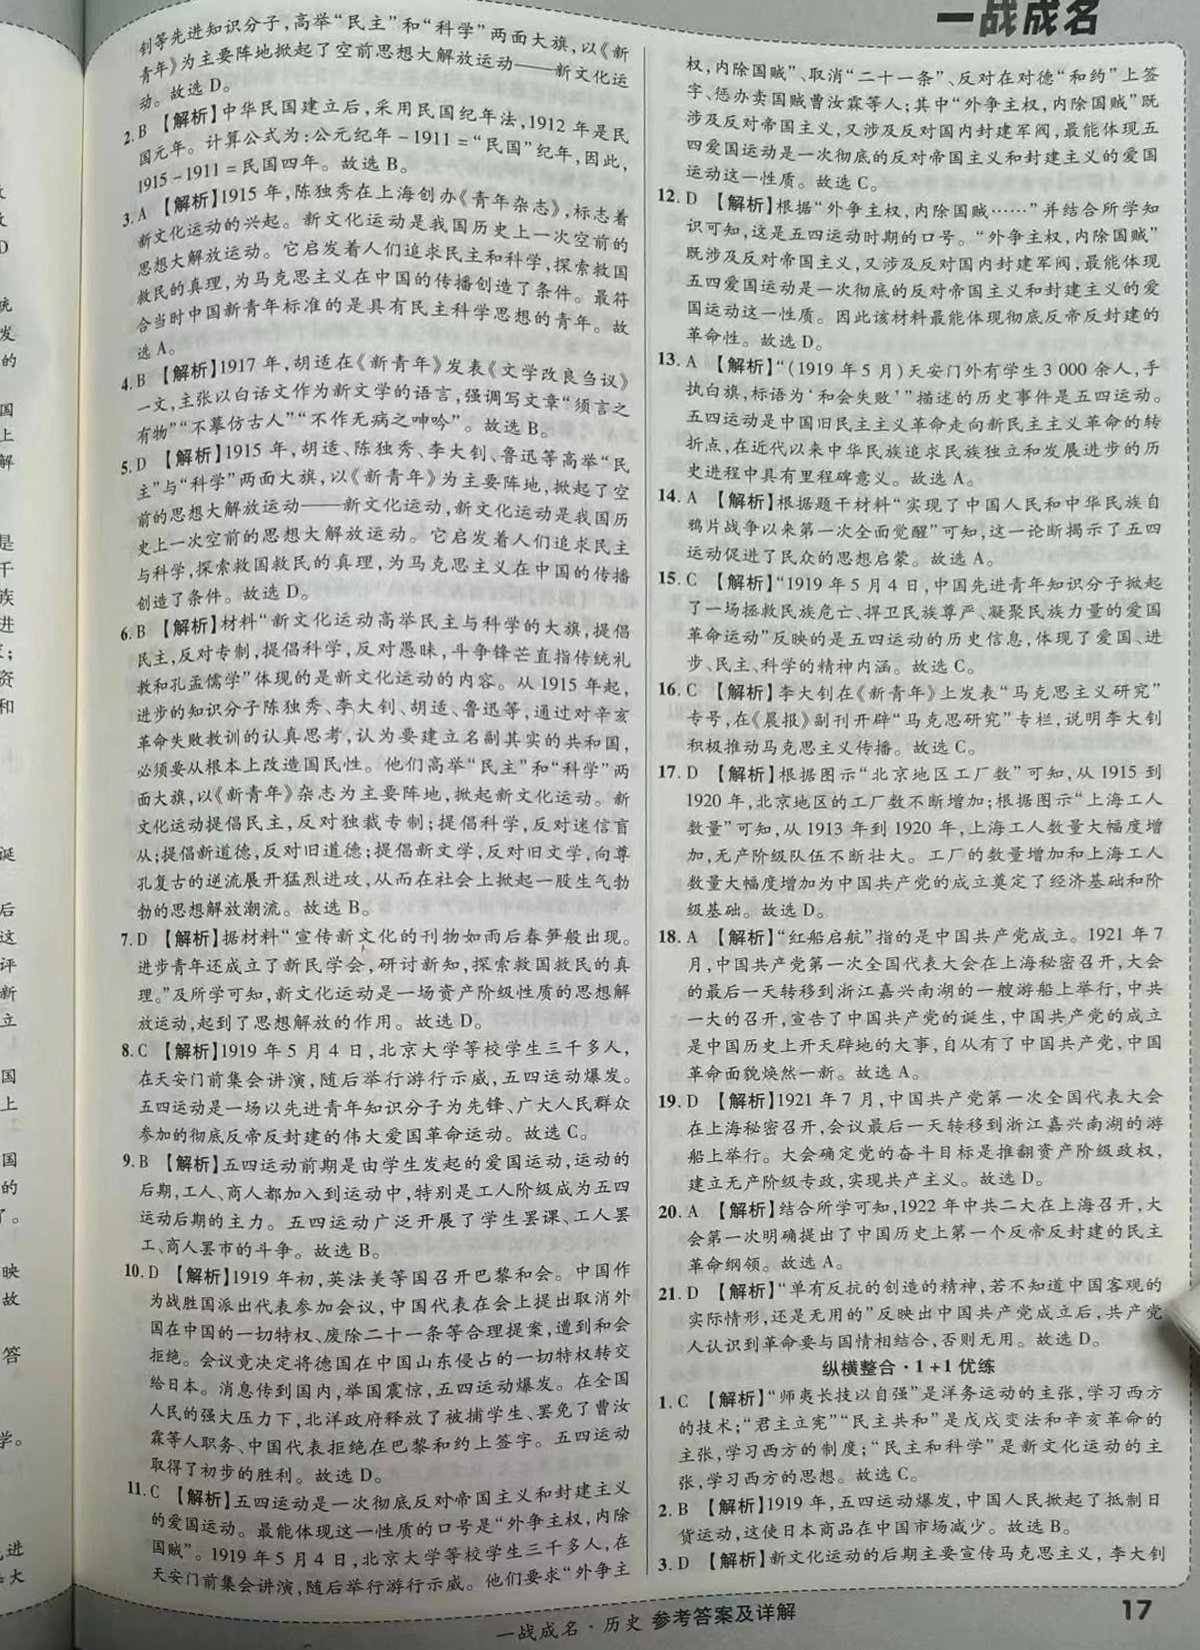 一战成名
钊等先进知识分子,高举“民主”和“科学”两面大旗,以《新
青年》为主要阵地掀起了空前思想大解放运动——新文化运
动。故选D。
2. B 【解析】中华民国建立后,采用民国纪年法,1912年是民
国元年。计算公式为:公元纪年-1911=“民国”纪年,因此,
1915-1911=民国四年。故选B。
3. A 【解析】1915年,陈独秀在上海创办《青年杂志》,标志着
新文化运动的兴起。新文化运动是我国历史上一次空前的
思想大解放运动。它启发着人们追求民主和科学,探索救国
救民的真理,为马克思主义在中国的传播创造了条件。最符
合当时中国新青年标准的是具有民主科学思想的青年。故
选A。
4. B 【解析】1917年,胡适在《新青年》发表《文学改良刍议》
一文,主张以白话文作为新文学的语言,强调写文章“须言之
有物”“不摹仿古人”“不作无病之呻吟”。故选B。
5. D 【解析】1915年,胡适、陈独秀、李大钊、鲁迅等高举“民
主”与“科学”两面大旗,以《新青年》为主要阵地,掀起了空
前的思想大解放运动——新文化运动,新文化运动是我国历
史上一次空前的思想大解放运动。它启发着人们追求民主
与科学,探索救国救民的真理,为马克思主义在中国的传播
创造了条件。故选D。
6. B 【解析】材料“新文化运动高举民主与科学的大旗,提倡
民主,反对专制,提倡科学,反对愚昧,斗争锋芒直指传统礼
教和孔孟儒学”体现的是新文化运动的内容。从1915年起,
进步的知识分子陈独秀、李大钊、胡适、鲁迅等,通过对辛亥
革命失败教训的认真思考,认为要建立名副其实的共和国,
必须要从根本上改造国民性。他们高举“民主”和“科学”两
面大旗,以《新青年》杂志为主要阵地,掀起新文化运动。新
文化运动提倡民主,反对独裁专制;提倡科学,反对迷信盲
从;提倡新道德,反对旧道德;提倡新文学,反对旧文学,向尊
孔复古的逆流展开猛烈进攻,从而在社会上掀起一股生气勃
勃的思想解放潮流。故选B。
7. D 【解析】据材料“宣传新文化的刊物如雨后春笋般出现。
进步青年还成立了新民学会,研讨新知,探索救国救民的真
理。”及所学可知,新文化运动是一场资产阶级性质的思想解
放运动,起到了思想解放的作用。故选D。
8. C 【解析】1919年5月4日,北京大学等校学生三千多人,
在天安门前集会讲演,随后举行游行示威,五四运动爆发。
五四运动是一场以先进青年知识分子为先锋、广大人民群众
参加的彻底反帝反封建的伟大爱国革命运动。故选C。
9. B 【解析】五四运动前期是由学生发起的爱国运动,运动的
后期,工人、商人都加入到运动中,特别是工人阶级成为五四
运动后期的主力。五四运动广泛开展了学生罢课、工人罢
工、商人罢市的斗争。故选B。
10. D 【解析】1919年初,英法美等国召开巴黎和会。中国作
为战胜国派出代表参加会议,中国代表在会上提出取消外
国在中国的一切特权、废除二十一条等合理提案,遭到和会
拒绝。会议竟决定将德国在中国山东侵占的一切特权转交
给日本。消息传到国内,举国震惊,五四运动爆发。在全国
人民的强大压力下,北洋政府释放了被捕学生、罢免了曹汝
霖等人职务、中国代表拒绝在巴黎和约上签字。五四运动
取得了初步的胜利。故选D。
11. C 【解析】五四运动是一次彻底反对帝国主义和封建主义
的爱国运动。最能体现这一性质的口号是“外争主权,内除
国贼”。1919年5月4日,北京大学等校学生三千多人,在
天安门前集会讲演,随后举行游行示威。他们要求“外争主
权,内除国贼”、取消“二十一条”、反对在对德“和约”上签
字、惩办卖国贼曹汝霖等人;其中“外争主权,内除国贼”既
涉及反对帝国主义,又涉及反对国内封建军阀,最能体现五
四爱国运动是一次彻底的反对帝国主义和封建主义的爱国
运动这一性质。故选C。
12. D 【解析】根据“外争主权,内除国贼……”并结合所学知
识可知,这是五四运动时期的口号。“外争主权,内除国贼”
既涉及反对帝国主义,又涉及反对国内封建军阀,最能体现
五四爱国运动是一次彻底的反对帝国主义和封建主义的爱
国运动这一性质。因此该材料最能体现彻底反帝反封建的
革命性。故选D。
13. A 【解析】“(1919年5月)天安门外有学生3 000余人,手
执白旗,标语为‘和会失败’”描述的历史事件是五四运动。
五四运动是中国旧民主主义革命走向新民主主义革命的转
折点,在近代以来中华民族追求民族独立和发展进步的历
史进程中具有里程碑意义。故选A。
14. A 【解析】根据题干材料“实现了中国人民和中华民族自
鸦片战争以来第一次全面觉醒”可知,这一论断揭示了五四
运动促进了民众的思想启蒙。故选A。
15. C 【解析】“1919年5月4日,中国先进青年知识分子掀起
了一场拯救民族危亡、捍卫民族尊严、凝聚民族力量的爱国
革命运动”反映的是五四运动的历史信息,体现了爱国、进
步、民主、科学的精神内涵。故选C。
16. C 【解析】李大钊在《新青年》上发表“马克思主义研究”
专号,在《晨报》副刊开辟“马克思研究”专栏,说明李大钊
积极推动马克思主义传播。故选C。
17. D 【解析】根据图示“北京地区工厂数”可知,从1915到
1920年,北京地区的工厂数不断增加;根据图示“上海工人
数量”可知,从1913年到1920年,上海工人数量大幅度增
加,无产阶级队伍不断壮大。工厂的数量增加和上海工人
数量大幅度增加为中国共产党的成立奠定了经济基础和阶
级基础。故选D。
18. A 【解析】“红船启航”指的是中国共产党成立。1921年7
月,中国共产党第一次全国代表大会在上海秘密召开,大会
的最后一天转移到浙江嘉兴南湖的一艘游船上举行,中共
一大的召开,宣告了中国共产党的诞生,中国共产党的成立
是中国历史上开天辟地的大事,自从有了中国共产党,中国
革命面貌焕然一新。故选A。
19. D 【解析】1921年7月,中国共产党第一次全国代表大会
在上海秘密召开,会议最后一天转移到浙江嘉兴南湖的游
船上举行。大会确定党的奋斗目标是推翻资产阶级政权,
建立无产阶级专政,实现共产主义。故选D。
20. A 【解析】结合所学可知,1922年中共二大在上海召开,大
会第一次明确提出了中国历史上第一个反帝反封建的民主
革命纲领。故选A。
21. D 【解析】“单有反抗的创造的精神,若不知道中国客观的
实际情形,还是无用的”反映出中国共产党成立后,共产党
人认识到革命要与国情相结合,否则无用。故选D。
纵横整合·1+1优练
1. C 【解析】“师夷长技以自强”是洋务运动的主张,学习西方
的技术;“君主立宪”“民主共和”是戊戌变法和辛亥革命的
主张,学习西方的制度;“民主和科学”是新文化运动的主
张,学习西方的思想。故选C。
2. B 【解析】1919年,五四运动爆发,中国人民掀起了抵制日
货运动,这使日本商品在中国市场减少。故选B。
3. D 【解析】新文化运动的后期主要宣传马克思主义,李大钊
一战成名·历史 参考答案及详解
17